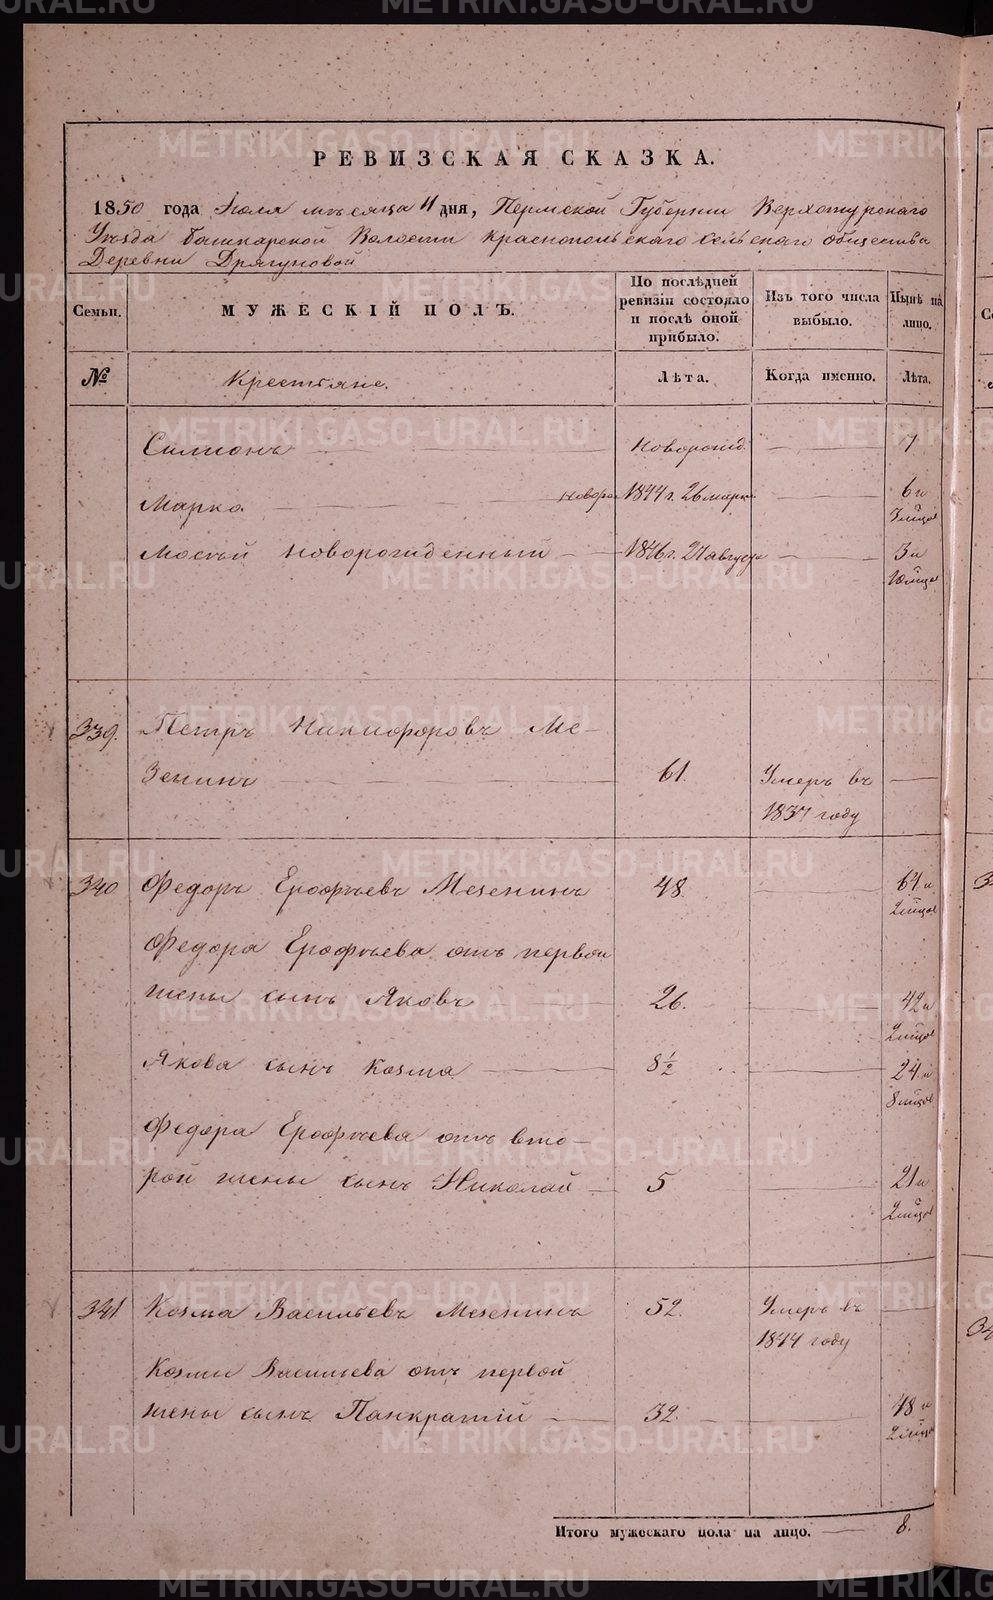 РЕВИЗСКАЯ СКАЗКА.
1850 года Июля месяца 11 дня, Пермской Губернии Верхотурского
Уѣзда Башкарской Волости Краснопольскаго Сельскаго общества
Деревни Дрягуновой
Семьи. МУЖЕСКІЙ ПОЛЪ. По послѣдней ревизіи состояло и послѣ оной прибыло. Изъ того числа выбыло. Нынѣ на лицо.
№ Крестьяне. Лѣта. Когда именно. Лѣта.
Симионъ новорожд. 7
Марко новоро 1844 г. 26 марта 6 и 3 мѣцов
Мосѣй новорожденный 1846 г. 27 августа 3 и 10 мѣцов
339. Петръ Никифоровъ Ме-
зенинъ 61. Умеръ въ
1837 году
340 Федоръ Ерофѣевъ Мезенинъ 48 64 и 2 мѣцов
Федора Ерофѣева отъ первой
жены сынъ Яковъ 26. 42 и 2 мѣцов
Якова сынъ Козма 8½ 24 и 8 мѣцов
Федора Ерофѣева отъ вто-
рой жены сынъ Николай 5 21 и 2 мѣцов
341 Козма Васильевъ Мезенинъ 52. Умеръ въ
1844 году
Козмы Васильева отъ первой
жены сынъ Панкратій 32. 48 и 2 мѣцов
Итого мужескаго пола на лицо. 8.
METRIKI.GASO-URAL.RU